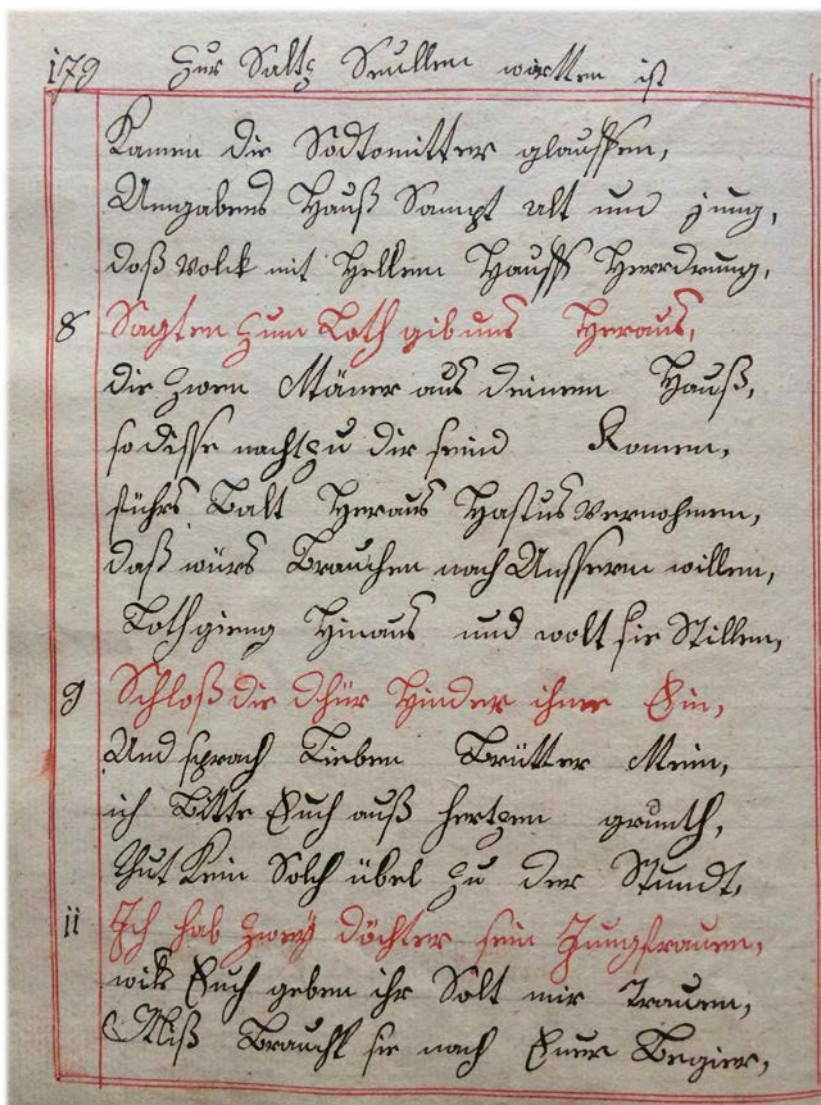 179 Zur Saltz Seullen wortten ist
Kamen die Sodtomitter glauffen,
Umgabens Hauß Sampt alt und jung,
daß volck mit Hellem Hauff Herrdrung,
8 Sagten zum Loth gib uns Heraus,
die zwen Mäner aus deinem Hauß,
so disse nacht zu dir seind Komen,
führs Balt Heraus Hastus vernohmen,
daß würs Brauchen nach Unsserm willen,
Loth gieng Hinaus und wolt sie Stillen,
9 Schloß die dhür Hinder ihme Ein,
Und sprach Lieben Brütter Mein,
ich Bitte Euch auß hertzen grunth,
thut Kein Solch übel zu der Stundt,
ii Ich hab zwey döchter sein Jungfrauen,
wils Euch geben ihr Solt mir Trauen,
Miß Braucht sie nach Euer Begier,